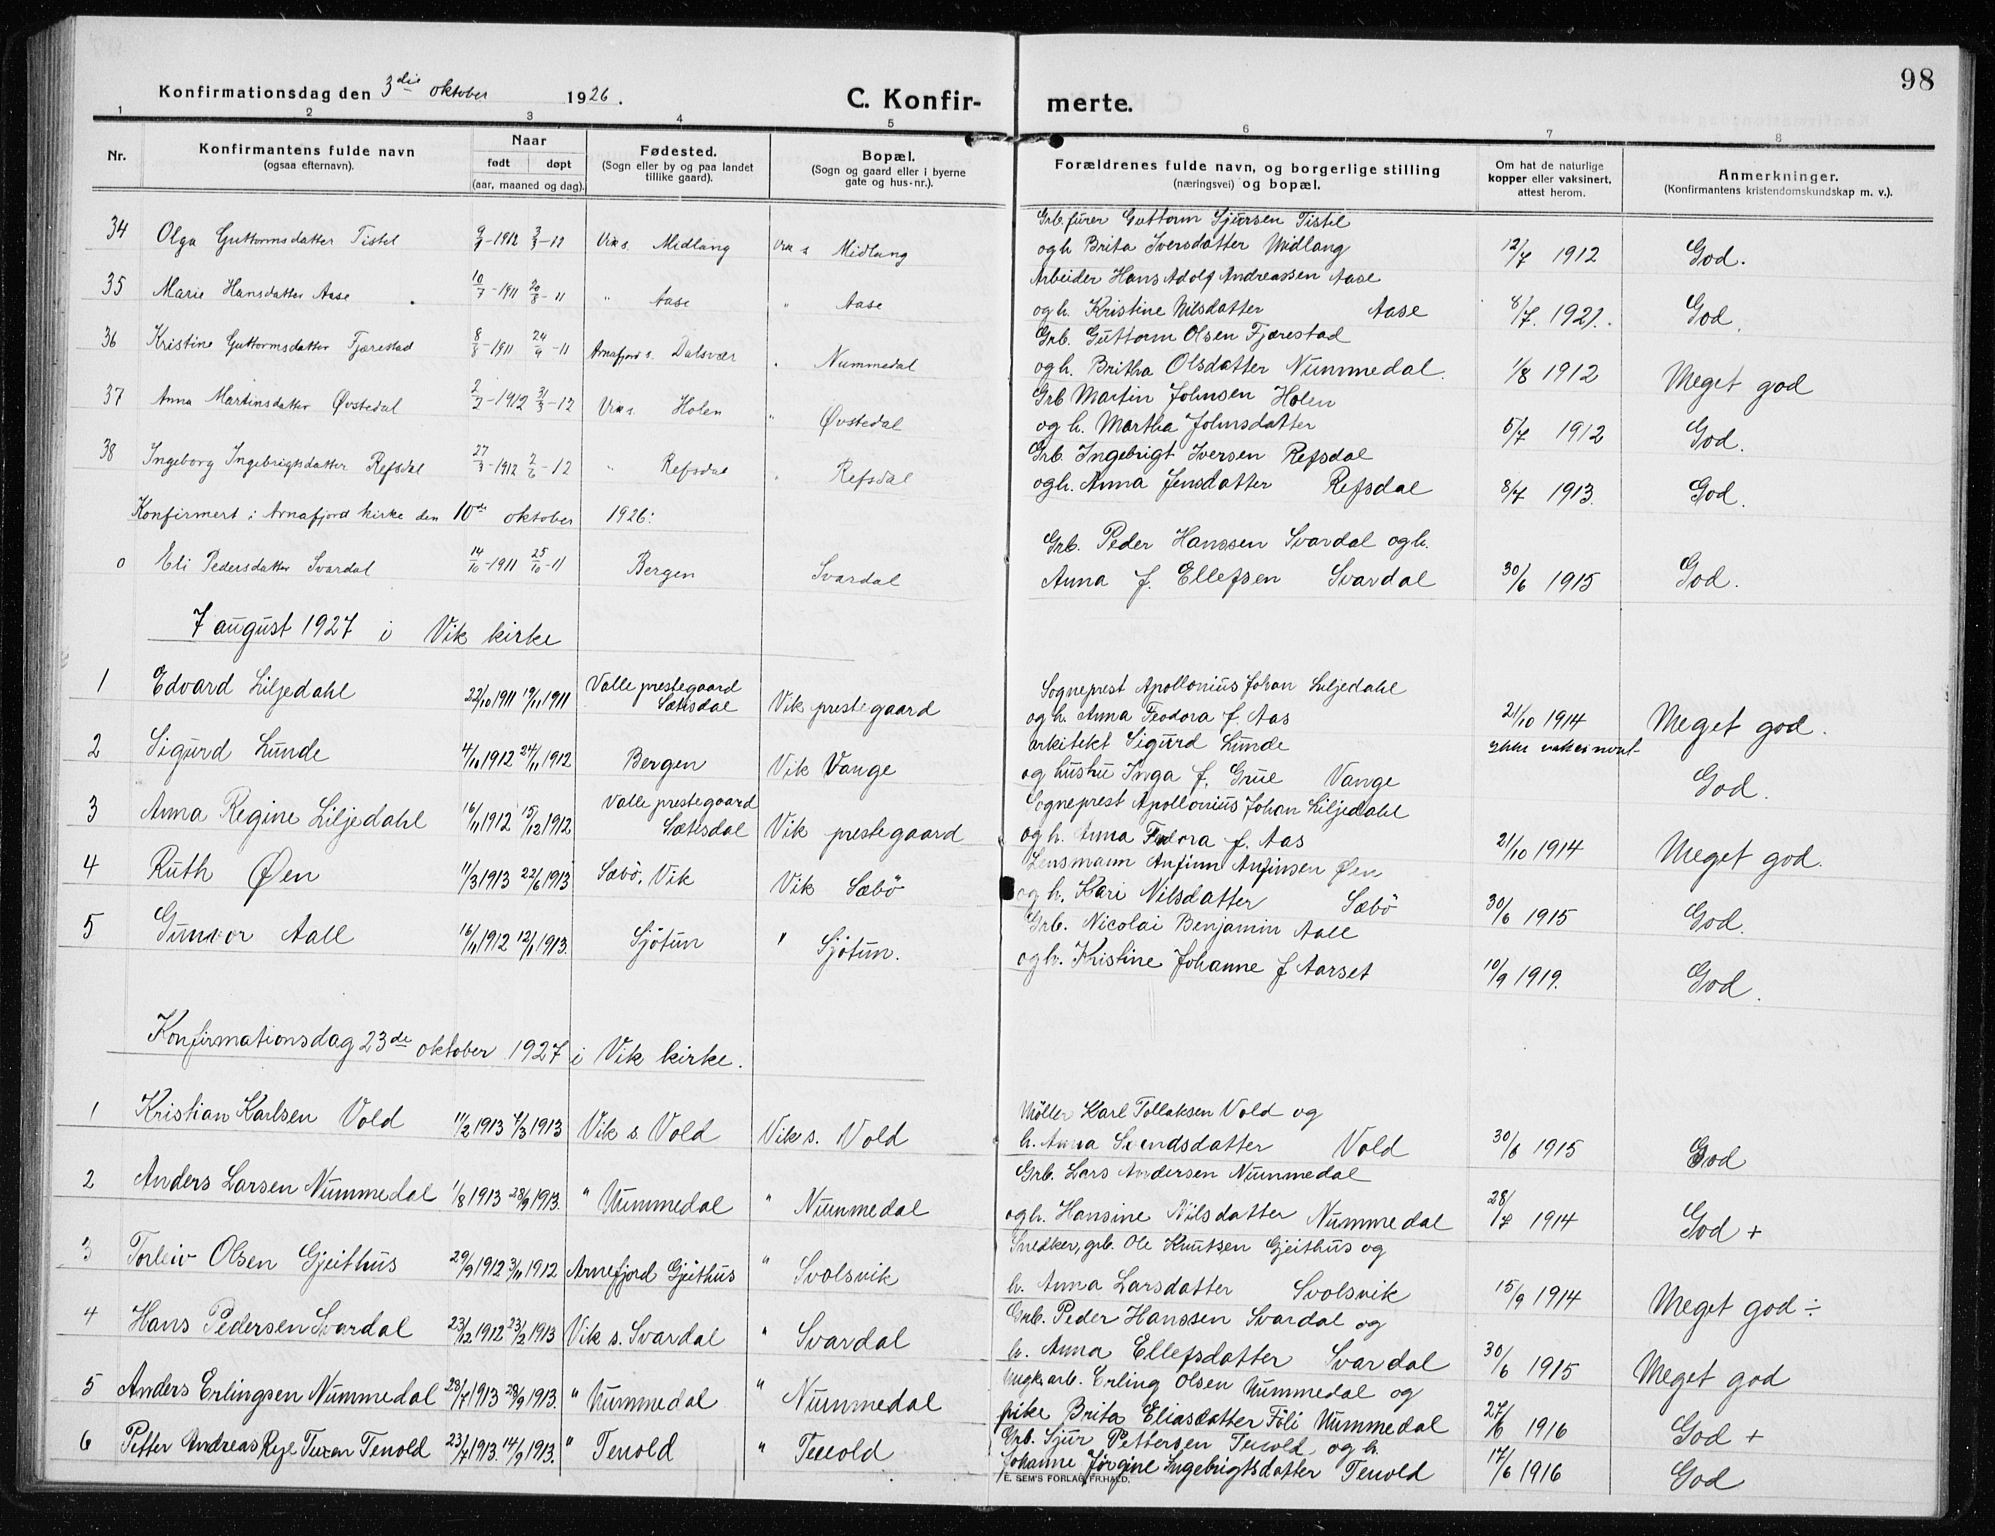 98
Konfirmationsdag den 3die oktober 1926.
C. Konfirmerte.
1 2 3 4 5 6 7 8
Nr.
Konfirmantens fulde navn (ogsaa efternavn).
Naar født døpt (aar, maaned og dag).
Fødested. (Sogn eller by og paa landet tillike gaard).
Bopæl. (Sogn og gaard eller i byerne gate og hus-nr.).
Forældrenes fulde navn, og borgerlige stilling (næringsvei) og bopæl.
Om hat de naturlige kopper eller vaksinert, attest herom.
Anmerkninger. (Konfirmantens kristendomskundskap m. v.).
34 Olga Guttormsdatter Tistel 9/1-1912 3/3-12 Vik s. Midlang Vik s Midlang Grb.fürer Guttorm Sjursen Tistel
og h Brita Iversdatter Midlang 12/7 1912 God.
35 Marie Hansdatter Aase 10/7-1911 20/8-11 " Aase " Aase Arbeider Hans Adolf Andreassen Aase
og h. Kristine Nilsdatter Aase 8/7. 1921. God.
36 Kristine Guttormsdatter Fjærestad 8/8-1911 24/9-11 Arnafjord s. Dalsvær " Nummedal Grb. Guttorm Olsen Fjærestad
og h. Britha Olsdatter Nummedal. 1/8 1912 Meget god
37 Anna Martinsdatter Øvstedal 2/2-1912 31/3-12 Vik s. Holen " Øvstedal Grb Martin Johnsen Holen
og h. Martha Johnsdatter 5/7 1912 God.
38 Ingeborg Ingebrigtsdatter Refsdal 27/3-1912 2/6-12 " Refsdal " Refsdal Grb. Ingebrigt Iversen Refsdal
og h. Anna Jensdatter Refsdal 8/7 1913. God.
Konfirmert i Arnafjord kirke den 10de oktober 1926:
0 Eli Pedersdatter Svardal 14/10-1911 25/10-11 Bergen Svardal Grb. Peder Hanssen Svardal og h.
Anna f. Ellefsen Svardal 30/6 1915 God.
7 august 1927 i Vik kirke
1 Edvard Liljedahl 22/10 1911 19/11 1911 Valle prestegaard Sætesdal Vik prestegaard Sogneprest Apollonius Johan Liljedahl
og h. Anna Feodora f. Aas 21/10 1914 Meget god.
2 Sigurd Lunde 4/11 1912 24/11 1912 Bergen Vik Vange arkitekt Sigurd Lunde
og hustru Inga f. Grue Vange ikke vaksinert God.
3 Anna Regine Liljedahl 16/11 1912 15/12 1912 Valle prestegaard Sætesdal Vik prestegaard Sogneprest Apollonius Johan Liljedahl
og h. Anna Fedora f. Aas 21/10 1914 Meget god.
4 Ruth Øen 11/3 1913 22/6 1913 Sæbö, Vik Vik Sæbö Lensmann Anfinn Anfinsen Øen
og h. Kari Nilsdatter Sæbö 30/6 1915 God.
5 Gunvor Aall 16/11 1912 12/1 1913. Sjötun " Sjötun. Grb. Nicolai Benjamin Aall
og h. Kristine Johanne f Aarset 10/9 1919. God.
Konfirmationsdag 23de oktober 1927 i Vik kirke.
1 Kristian Karlsen Vold 11/2 1913 4/3 1913 Vik s. Vold Vik s. Vold Möller Karl Tollaksen Vold og
h. Anna Svendsdatter Vold 30/6 1915 God
2 Anders Larsen Nummedal 1/8 1913 28/9 1913. " Nummedal " Nummedal Grb. Lars Andersen Nummedal
og h. Hansine Nilsdatter Nummedal 28/7 1914 God +
3 Torleiv Olsen Gjeithus 29/9 1912 3/11 1912 Arnefjord Gjeithus " Svolsvik Snedker, grb. Ole Knutsen Gjeithus og
h. Anna Larsdatter Svolsvik 15/9 1914 Meget god ÷
4 Hans Pedersen Svardal 23/12 1912 23/2 1913 Vik s. Svardal " Svardal Grb. Peder Hanssen Svardal og
h. Anna Ellefsdatter Svardal 30/6 1915 Meget god
5 Anders Erlingsen Nummedal 23/7 1913 28/9 1913. " Nummedal " Nummedal Ungk. arb. Erling Olsen Nummedal og
pike Brita Eliasdatter Föli Nummedal 27/6 1916 God +
6 Petter Andreas Tenold 23/7 1913. 14/9 1913. " Tenold " Tenold Grb. Sjur Pettersen Tenold og h.
Johanne Jörgine Ingebrigtsdatter Tenold 17/6 1916 God
E. SEM'S FORLAG, FR.HALD.